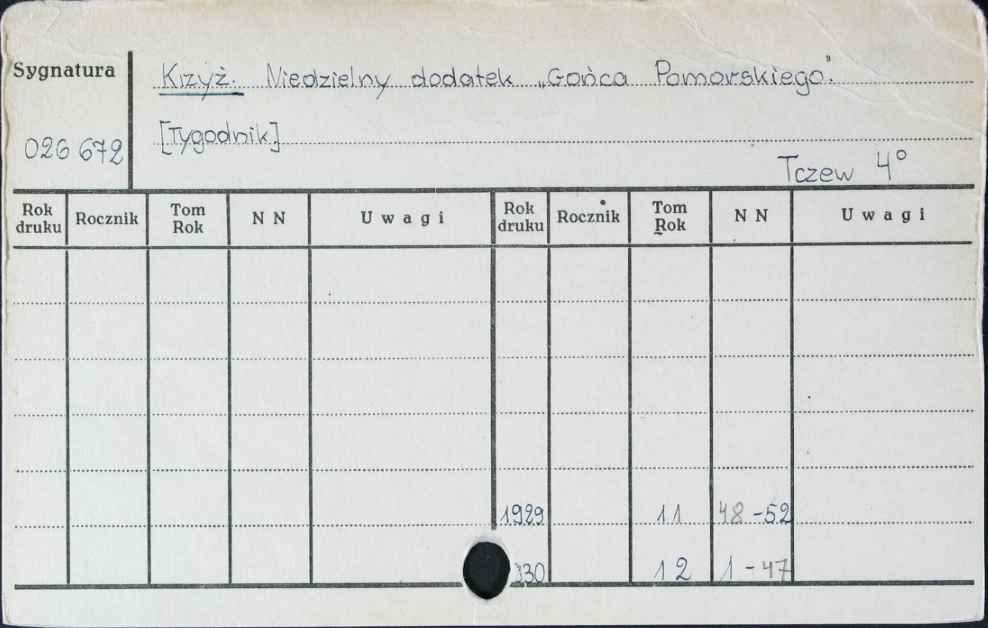 Sygnatura
Krzyż. Niedzielny dodatek „Gońca Pomorskiego”.
026 672
[Tygodnik]
Tczew 4°
Rok druku Rocznik Tom Rok N N Uwagi Rok druku Rocznik Tom Rok N N Uwagi
1929 11 48-52
330 12 1-47